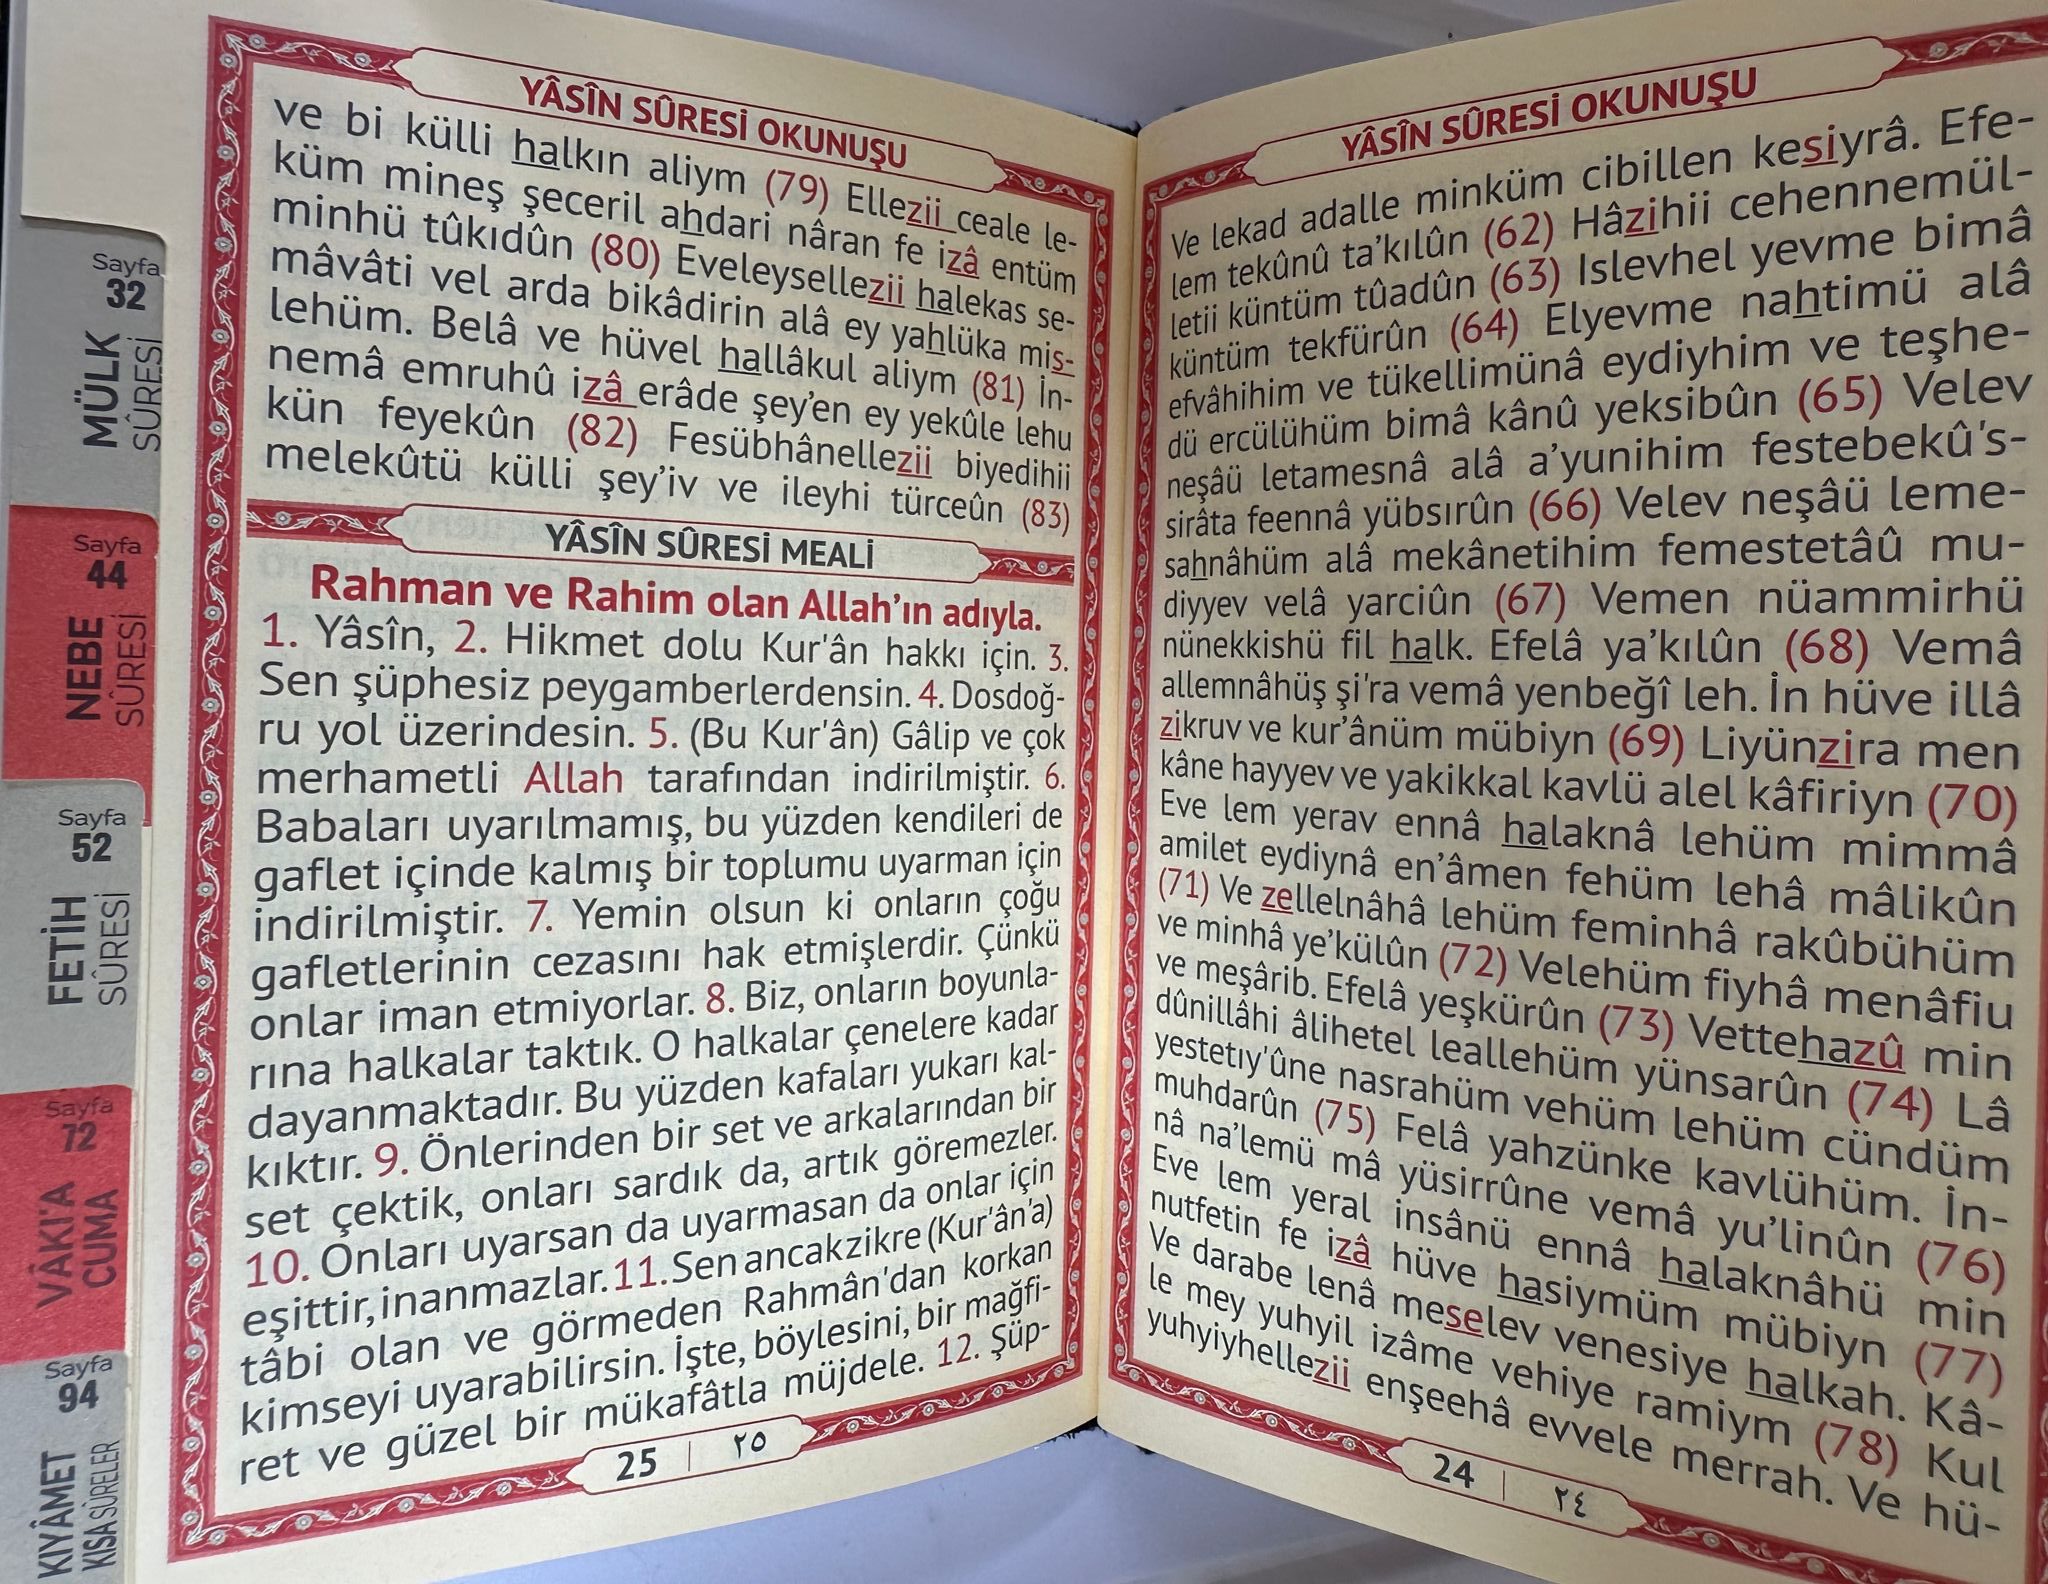 Sayfa
32
MÜLK
SÛRESİ
Sayfa
44
NEBE
SÛRESİ
Sayfa
52
FETİH
SÛRESİ
Sayfa
72
VÂKI'A
CUMA
Sayfa
94
KIYÂMET
KISA SÛRELER
YÂSÎN SÛRESİ OKUNUŞU
ve bi külli halkın aliym (79) Ellezii ceale le-
küm mineş şeceril ahdari nâran fe izâ entüm
minhü tûkıdûn (80) Eveleysellezii halekas se-
mâvâti vel arda bikâdirin alâ ey yahlüka mis-
lehüm. Belâ ve hüvel hallâkul aliym (81) İn-
nemâ emruhû izâ erâde şey'en ey yekûle lehu
kün feyekûn (82) Fesübhânellezii biyedihii
melekûtü külli şey'iv ve ileyhi türceûn (83)
YÂSÎN SÛRESİ MEALİ
Rahman ve Rahim olan Allah'ın adıyla.
1. Yâsîn, 2. Hikmet dolu Kur'ân hakkı için. 3.
Sen şüphesiz peygamberlerdensin. 4. Dosdoğ-
ru yol üzerindesin. 5. (Bu Kur'ân) Gâlip ve çok
merhametli Allah tarafından indirilmiştir. 6.
Babaları uyarılmamış, bu yüzden kendileri de
gaflet içinde kalmış bir toplumu uyarman için
indirilmiştir. 7. Yemin olsun ki onların çoğu
gafletlerinin cezasını hak etmişlerdir. Çünkü
onlar iman etmiyorlar. 8. Biz, onların boyunla-
rına halkalar taktık. O halkalar çenelere kadar
dayanmaktadır. Bu yüzden kafaları yukarı kal-
kıktır. 9. Önlerinden bir set ve arkalarından bir
set çektik, onları sardık da, artık göremezler.
10. Onları uyarsan da uyarmasan da onlar için
eşittir, inanmazlar. 11. Sen ancak zikre (Kur'ân'a)
tâbi olan ve görmeden Rahmân'dan korkan
kimseyi uyarabilirsin. İşte, böylesini, bir mağfi-
ret ve güzel bir mükafâtla müjdele. 12. Şüp-
25 | ٢٥
YÂSÎN SÛRESİ OKUNUŞU
Ve lekad adalle minküm cibillen kesiyrâ. Efe-
lem tekûnû ta'kılûn (62) Hâzihii cehennemül-
letii küntüm tûadûn (63) Islevhel yevme bimâ
küntüm tekfürûn (64) Elyevme nahtimü alâ
efvâhihim ve tükellimünâ eydiyhim ve teşhe-
dü ercülühüm bimâ kânû yeksibûn (65) Velev
neşâü letamesnâ alâ a'yunihim festebekû's-
sirâta feennâ yübsırûn (66) Velev neşâü leme-
sahnâhüm alâ mekânetihim femestetâû mu-
diyyev velâ yarciûn (67) Vemen nüammirhü
nünekkishü fil halk. Efelâ ya'kılûn (68) Vemâ
allemnâhüş şi'ra vemâ yenbeğî leh. İn hüve illâ
zikruv ve kur'ânüm mübiyn (69) Liyünzira men
kâne hayyev ve yakikkal kavlü alel kâfiriyn (70)
Eve lem yerav ennâ halaknâ lehüm mimmâ
amilet eydiynâ en'âmen fehüm lehâ mâlikûn
(71) Ve zellelnâhâ lehüm feminhâ rakûbühüm
ve minhâ ye'külûn (72) Velehüm fiyhâ menâfiu
ve meşârib. Efelâ yeşkürûn (73) Vettehazû min
dûnillâhi âlihetel leallehüm yünsarûn (74) Lâ
yestetıy'ûne nasrahüm vehüm lehüm cündüm
muhdarûn (75) Felâ yahzünke kavlühüm. İn-
nâ na'lemü mâ yüsirrûne vemâ yu'linûn (76)
Eve lem yeral insânü ennâ halaknâhü min
nutfetin fe izâ hüve hasiymüm mübiyn (77)
Ve darabe lenâ meselev venesiye halkah. Kâ-
le mey yuhyil izâme vehiye ramiym (78) Kul
yuhyiyhellezii enşeehâ evvele merrah. Ve hü-
24 | ٢٤